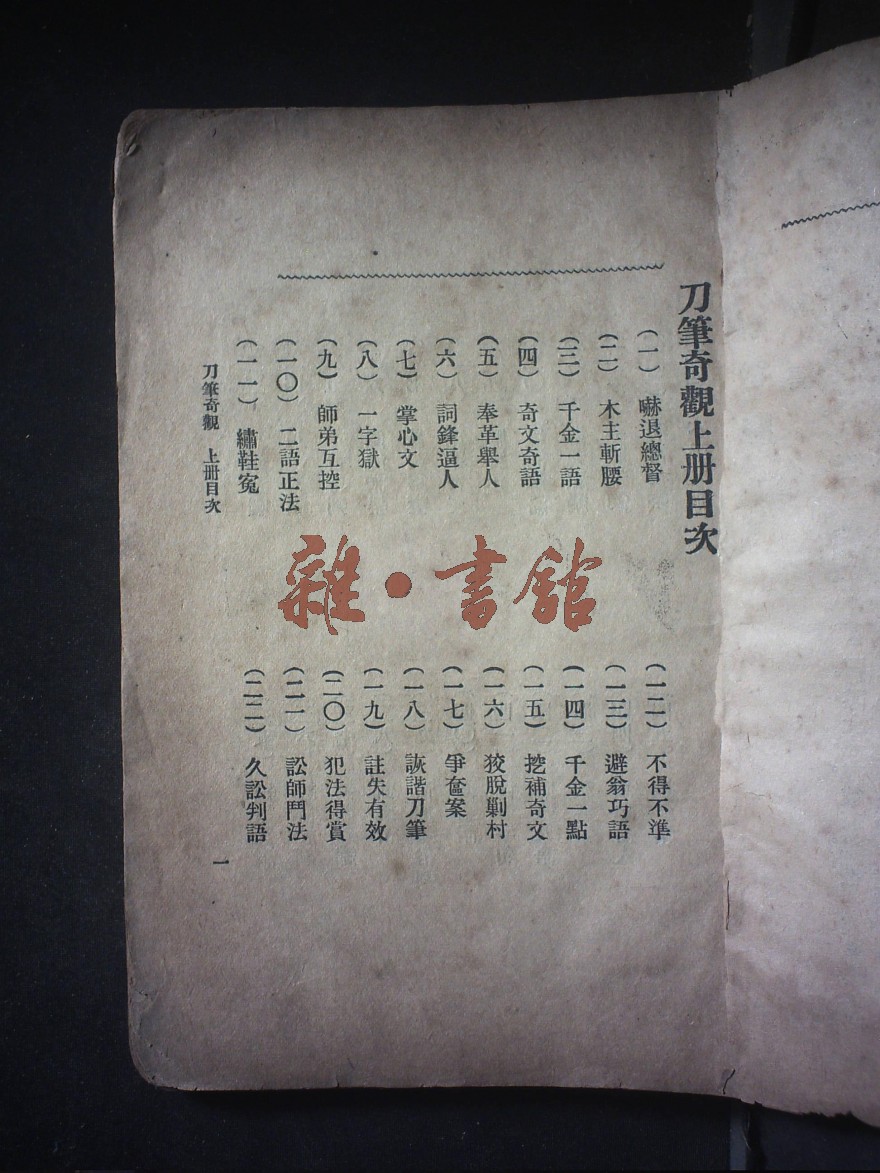 刀筆奇觀上册目次
(一) 嚇退總督
(二) 木主斬腰
(三) 千金一語
(四) 奇文奇語
(五) 奉革舉人
(六) 詞鋒逼人
(七) 掌心文
(八) 一字獄
(九) 師弟互控
(一〇) 二語正法
(一一) 繡鞋寃
(一二) 不得不準
(一三) 避翁巧語
(一四) 千金一點
(一五) 挖補奇文
(一六) 狡脫剿村
(一七) 爭奩案
(一八) 詼諧刀筆
(一九) 註失有效
(二〇) 犯法得賞
(二一) 訟師鬥法
(二二) 久訟判語
刀筆奇觀 上册目次
一
雜·書館